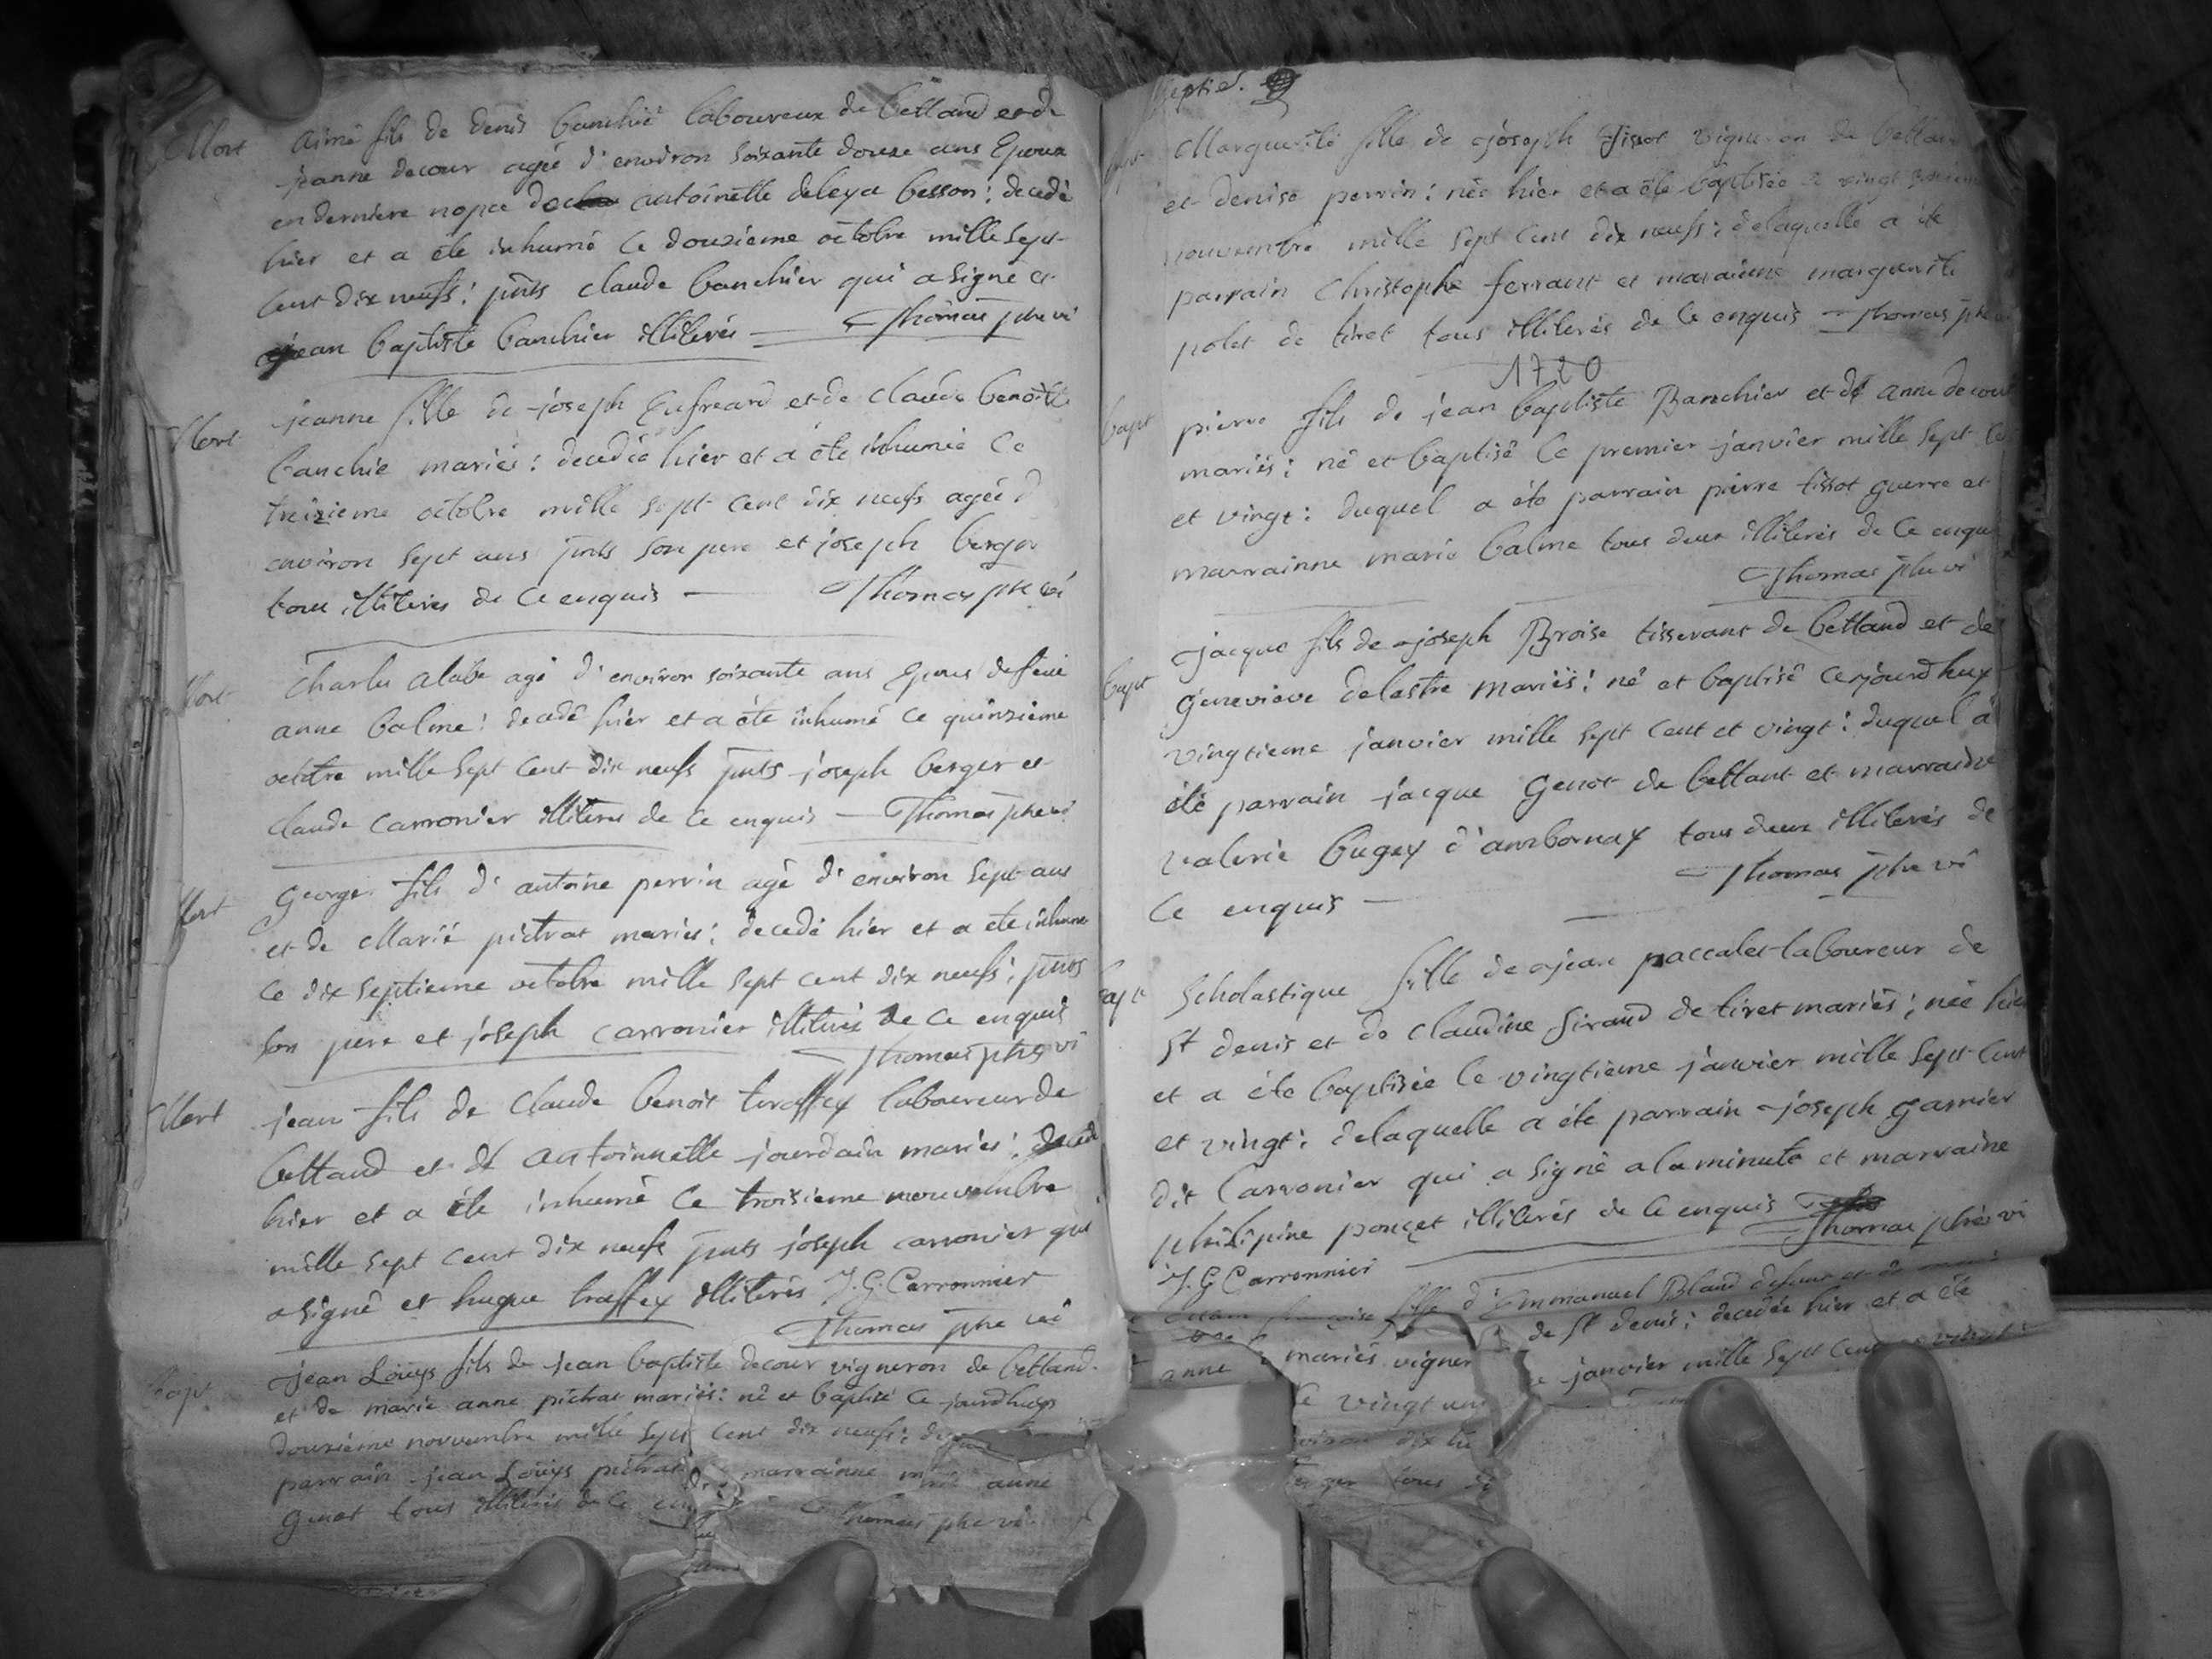 Mort
aimé fils de denis banchié laboureux de bettand et de
jeanne decour agée d'environ soixante douze ans Epoux
en derniere nopce de antoinette deleya besson: decedé
hier et a éte inhumé ce douzieme octobre mille sept
cent dix neufs: pnts claude banchier qui a signé et
jean baptiste banchier illiterés Thomas ptre vi
Mort
jeanne fille de joseph Eufreard et de claude benoitte
banchie mariés: decedée hier et a éte inhumée ce
treizieme octobre mille sept cent dix neufs agée d
environ sept ans pnts son pere et joseph berger
tous illiteres de ce enquis Thomas ptre vi
Mort
Charles alabe agé d'environ soixante ans Epoux defeue
anne balme: decedé hier et a éte inhumé ce quinzieme
octobre mille sept cent dix neufs pnts joseph berger et
claude carronier illiteres de ce enquis Thomas ptre vi
Mort
George fils d'antoine perrin agé d'environ sept ans
et de Marie pictrat mariés: decedé hier et a ete inhumé
ce dix septieme octobre mille sept cent dix neufs: pnts
son pere et joseph carronier illiterés de ce enquis
Thomas ptre vi
Mort
jean fils de claude benoit traffey laboureur de
bettand et de antoinette jourdain mariés: decedé
hier et a éte inhumé ce troisieme nouvembre
mille sept cent dix neufs pnts joseph carronier qui
a signé et hugue traffey illiterés J. G. Carronnier
Thomas ptre vi
bapt.
jean Loüys fils de jean baptiste decour vigneron de bettand
et de marie anne pictrat mariés: né et baptisé ce jourdhuy
douzieme nouvembre mille sept cent dix neufs:
parrain jean Loüys pictrat marrainne anne
genot tous illiterés de ce Thomas ptre vi
bapt
Marguerite fille de joseph Tissot vigneron de bettan
et denise perrin: née hier et a éte baptisée ce vingt
nouvembre mille sept cent dix neufs: delaquelle a éte
parrain Christophe ferrant et marainne marguerite
polet de tiret tous illiterés de ce enquis Thomas ptre
1720
bapt
pierre fils de jean baptiste Banchier et de anne decour
mariés: né et baptisé ce premier janvier mille sept ce
et vingt: duquel a éte parrain pierre tissot guerre et
marrainne marie balme tous deux illiterés de ce enqu
Thomas ptre vi
bapt
jacque fils de joseph Broise tisserant de bettand et de
genevieve delastre mariés: né et baptisé cejourdhuy
vingtieme janvier mille sept cent et vingt: duquel a
été parrain jacque Genot de bettant et marraine
valerie bugey d'ambornay tous deux illiterés de
ce enquis Thomas ptre vi
bapt
Scholastique fille de jean paccalet laboureur de
st denis et de claudine Siraud de tiret mariés; née hier
et a éte baptisée le vingtieme janvier mille sept cent
et vingt: delaquelle a éte parrain joseph garnier
dit Carronier qui a signé a la minute et marraine
philipine ponçet illiterés de ce enquis
Thomas ptre vi
J. G Carronnier
françoise fille d'Emmanuel Bland defunt et de
anne mariés vigner de st denis: decedée hier et a éte
ce vingt un janvier mille sept cent vingt
dix
berger tous de